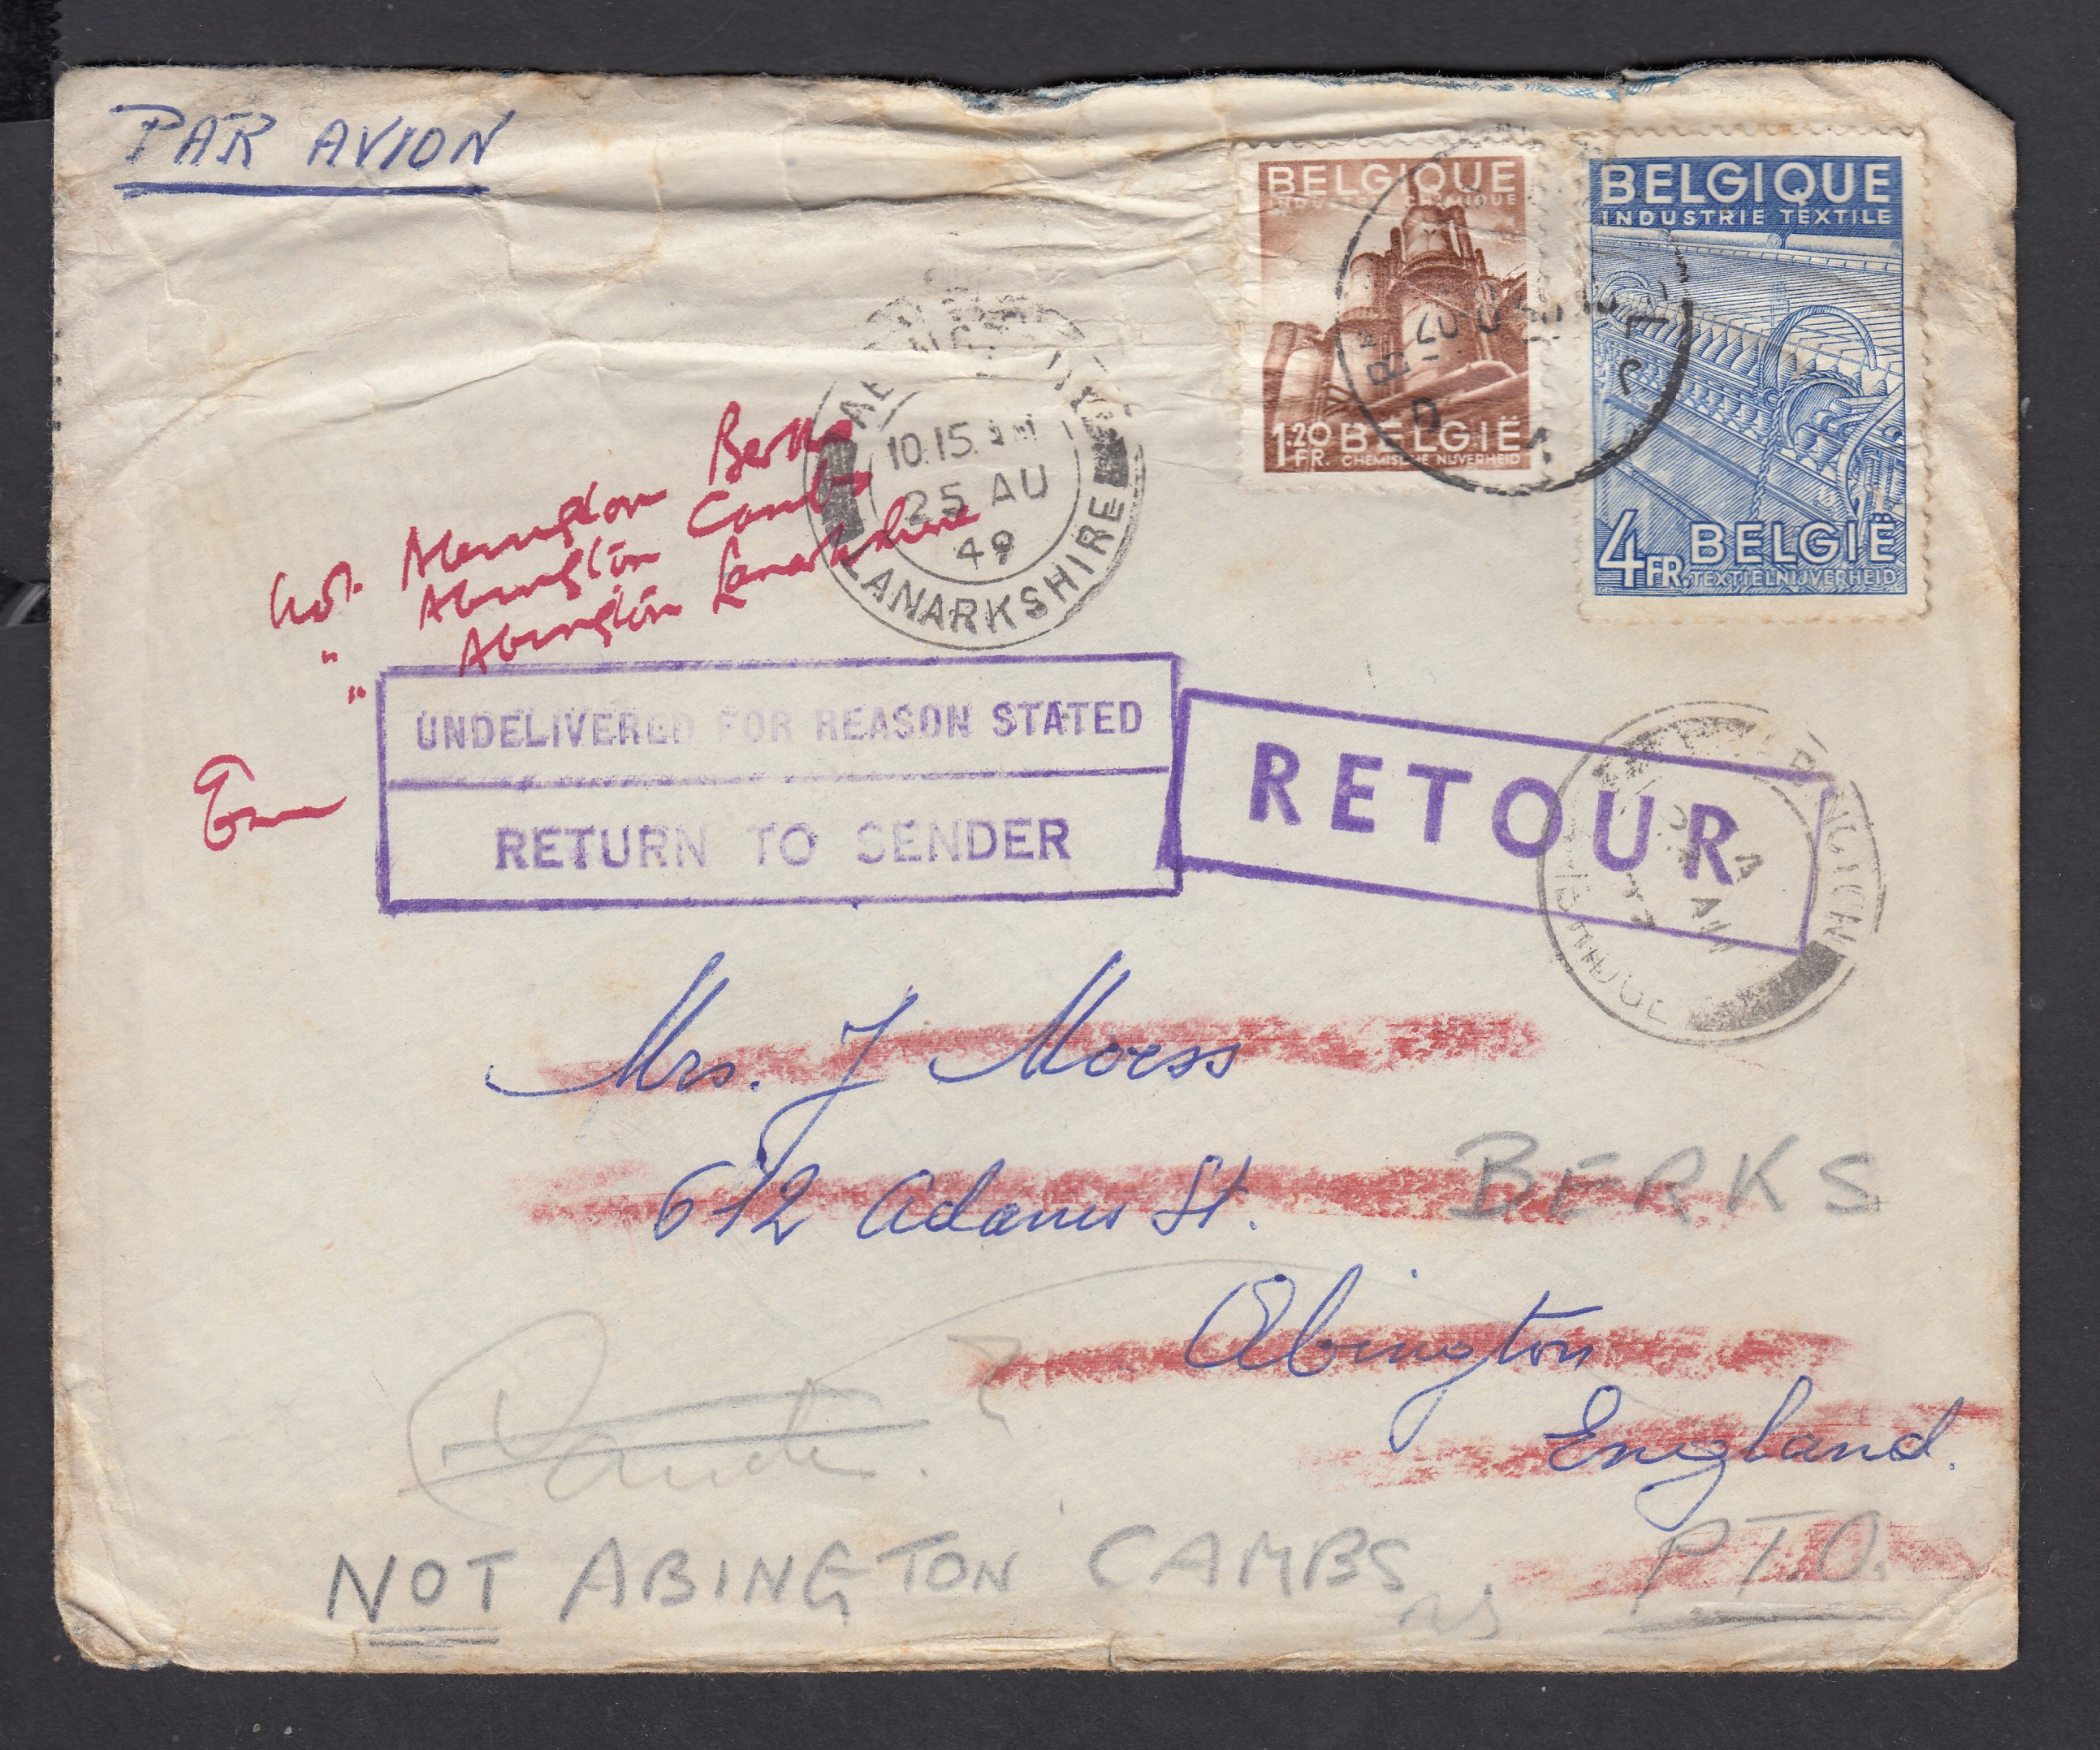 PAR AVION
BELGIQUE
INDUSTRIE CHIMIQUE
1.20 FR. BELGIË
CHEMISCHE NIJVERHEID
BELGIQUE
INDUSTRIE TEXTILE
4 FR. BELGIË
TEXTIELNIJVERHEID
10.15 AM
25 AU
49
LANARKSHIRE
not Abingdon Berks
" Abington Cambs
" Abington Lanarkshire
UNDELIVERED FOR REASON STATED
RETURN TO SENDER
RETOUR
Mrs. J Moess
612 Adams St.
BERKS
Abington
England.
NOT ABINGTON CAMBS
P.T.O.